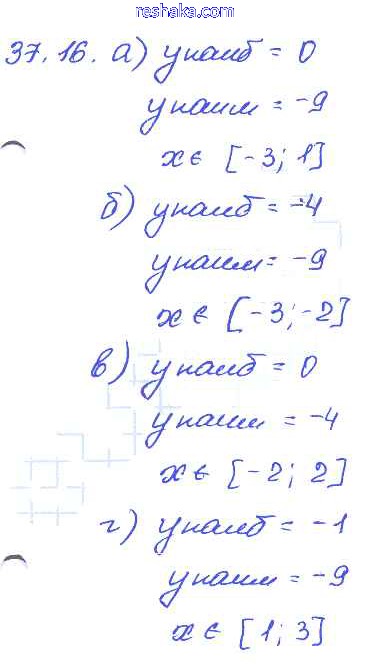 reshaka.com
37.16. а) yнаиб = 0
yнаим = -9
x ∈ [-3; 1]
б) yнаиб = -4
yнаим = -9
x ∈ [-3; -2]
в) yнаиб = 0
yнаим = -4
x ∈ [-2; 2]
г) yнаиб = -1
yнаим = -9
x ∈ [1; 3]